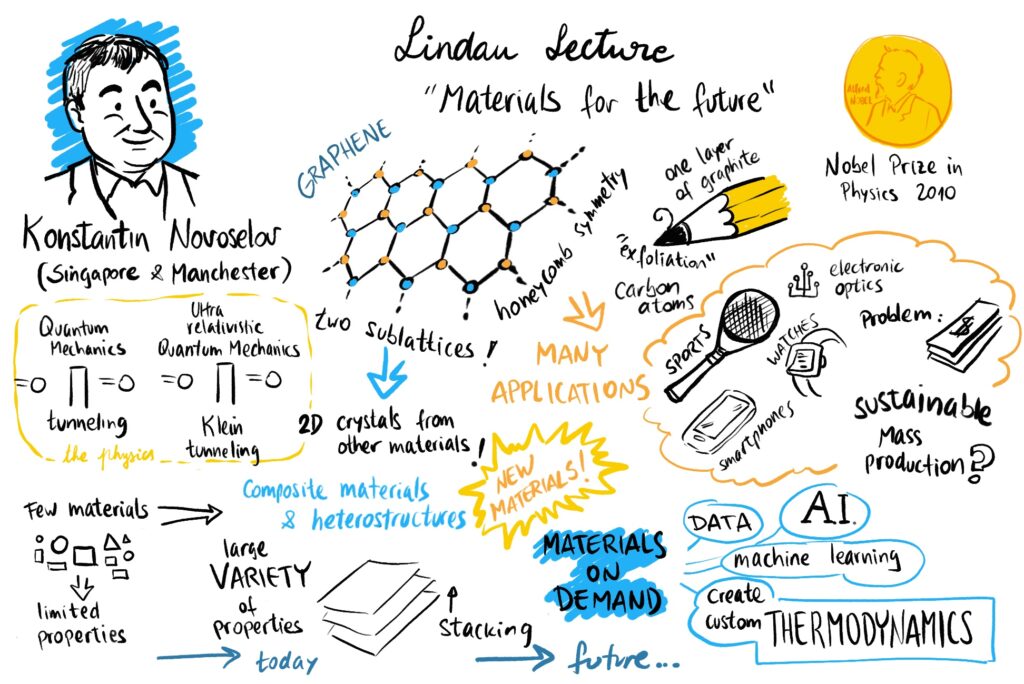 Lindau Lecture
"Materials for the future"
Alfred
NOBEL
Nobel Prize in
Physics 2010
Konstantin Novoselov
(Singapore & Manchester)
GRAPHENE
two sublattices!
honeycomb symmetry
one layer
of graphite
"exfoliation"
carbon
atoms
Quantum
Mechanics
tunneling
Ultra
relativistic
Quantum Mechanics
Klein
tunneling
the physics
2D crystals from
other materials!
MANY
APPLICATIONS
SPORTS
electronic
optics
WATCHES
smartphones
Problem:
$
sustainable
Mass
production?
Composite materials
& heterostructures
NEW
MATERIALS!
Few materials
limited
properties
large
VARIETY
of
properties
stacking
today
future...
MATERIALS
ON
DEMAND
DATA
A.I.
machine learning
create
custom
THERMODYNAMICS